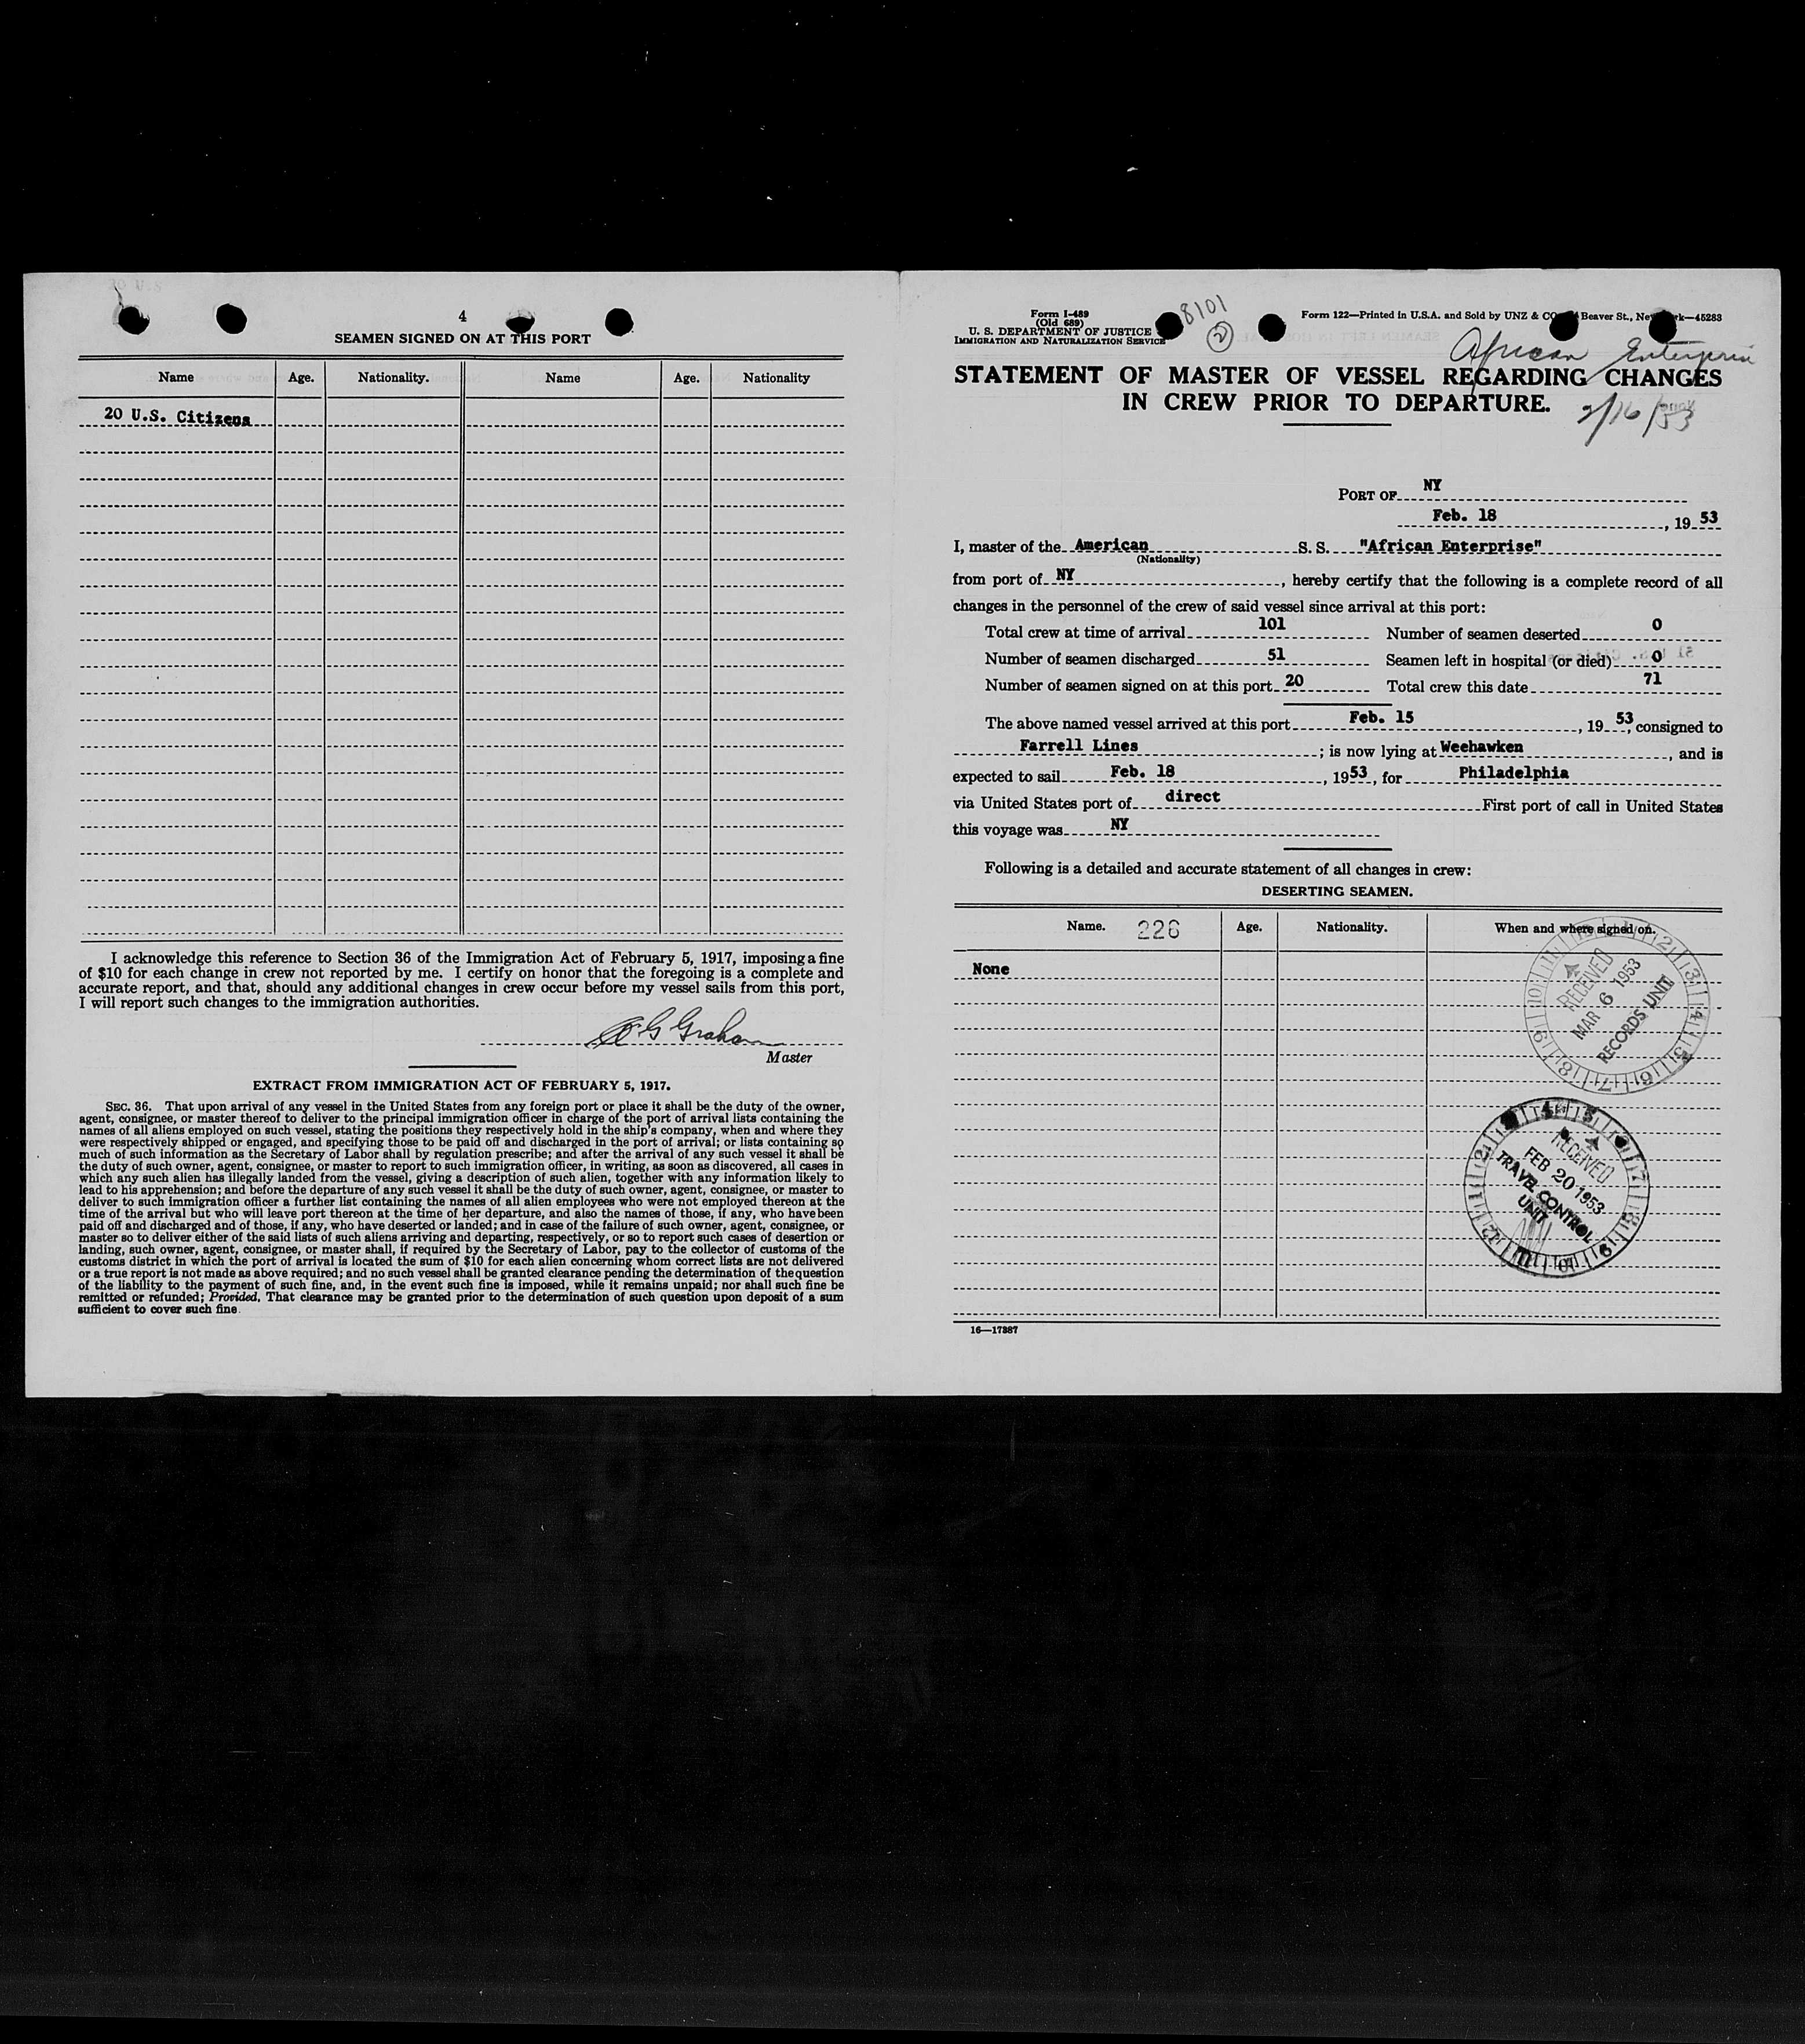 4
SEAMEN SIGNED ON AT THIS PORT
Name Age. Nationality. Name Age. Nationality
20 U.S. Citizens
I acknowledge this reference to Section 36 of the Immigration Act of February 5, 1917, imposing a fine
of $10 for each change in crew not reported by me. I certify on honor that the foregoing is a complete and
accurate report, and that, should any additional changes in crew occur before my vessel sails from this port,
I will report such changes to the immigration authorities.
G Graham
Master
EXTRACT FROM IMMIGRATION ACT OF FEBRUARY 5, 1917.
SEC. 36. That upon arrival of any vessel in the United States from any foreign port or place it shall be the duty of the owner,
agent, consignee, or master thereof to deliver to the principal immigration officer in charge of the port of arrival lists containing the
names of all aliens employed on such vessel, stating the positions they respectively hold in the ship's company, when and where they
were respectively shipped or engaged, and specifying those to be paid off and discharged in the port of arrival; or lists containing so
much of such information as the Secretary of Labor shall by regulation prescribe; and after the arrival of any such vessel it shall be
the duty of such owner, agent, consignee, or master to report to such immigration officer, in writing, as soon as discovered, all cases in
which any such alien has illegally landed from the vessel, giving a description of such alien, together with any information likely to
lead to his apprehension; and before the departure of any such vessel it shall be the duty of such owner, agent, consignee, or master to
deliver to such immigration officer a further list containing the names of all alien employees who were not employed thereon at the
time of the arrival but who will leave port thereon at the time of her departure, and also the names of those, if any, who have been
paid off and discharged and of those, if any, who have deserted or landed; and in case of the failure of such owner, agent, consignee, or
master so to deliver either of the said lists of such aliens arriving and departing, respectively, or so to report such cases of desertion or
landing, such owner, agent, consignee, or master shall, if required by the Secretary of Labor, pay to the collector of customs of the
customs district in which the port of arrival is located the sum of $10 for each alien concerning whom correct lists are not delivered
or a true report is not made as above required; and no such vessel shall be granted clearance pending the determination of the question
of the liability to the payment of such fine, and, in the event such fine is imposed, while it remains unpaid; nor shall such fine be
remitted or refunded; Provided, That clearance may be granted prior to the determination of such question upon deposit of a sum
sufficient to cover such fine.
Form I-489
(Old 689)
U. S. DEPARTMENT OF JUSTICE
IMMIGRATION AND NATURALIZATION SERVICE
8101
2
Form 122—Printed in U.S.A. and Sold by UNZ & CO Beaver St., New York—45283
African Enterprise
STATEMENT OF MASTER OF VESSEL REGARDING CHANGES
IN CREW PRIOR TO DEPARTURE.
2/16/53
PORT OF NY
Feb. 18, 19 53
I, master of the American S. S. "African Enterprise"
(Nationality)
from port of NY, hereby certify that the following is a complete record of all
changes in the personnel of the crew of said vessel since arrival at this port:
Total crew at time of arrival 101 Number of seamen deserted 0
Number of seamen discharged 51 Seamen left in hospital (or died) 0
Number of seamen signed on at this port 20 Total crew this date 71
The above named vessel arrived at this port Feb. 15, 19 53, consigned to
Farrell Lines; is now lying at Weehawken, and is
expected to sail Feb. 18, 1953, for Philadelphia
via United States port of direct First port of call in United States
this voyage was NY
Following is a detailed and accurate statement of all changes in crew:
DESERTING SEAMEN.
Name. 226 Age. Nationality. When and where signed on.
None
RECEIVED
MAR 6 1953
RECORDS UNIT
RECEIVED
FEB 20 1953
TRAVEL CONTROL
UNIT
16—17387